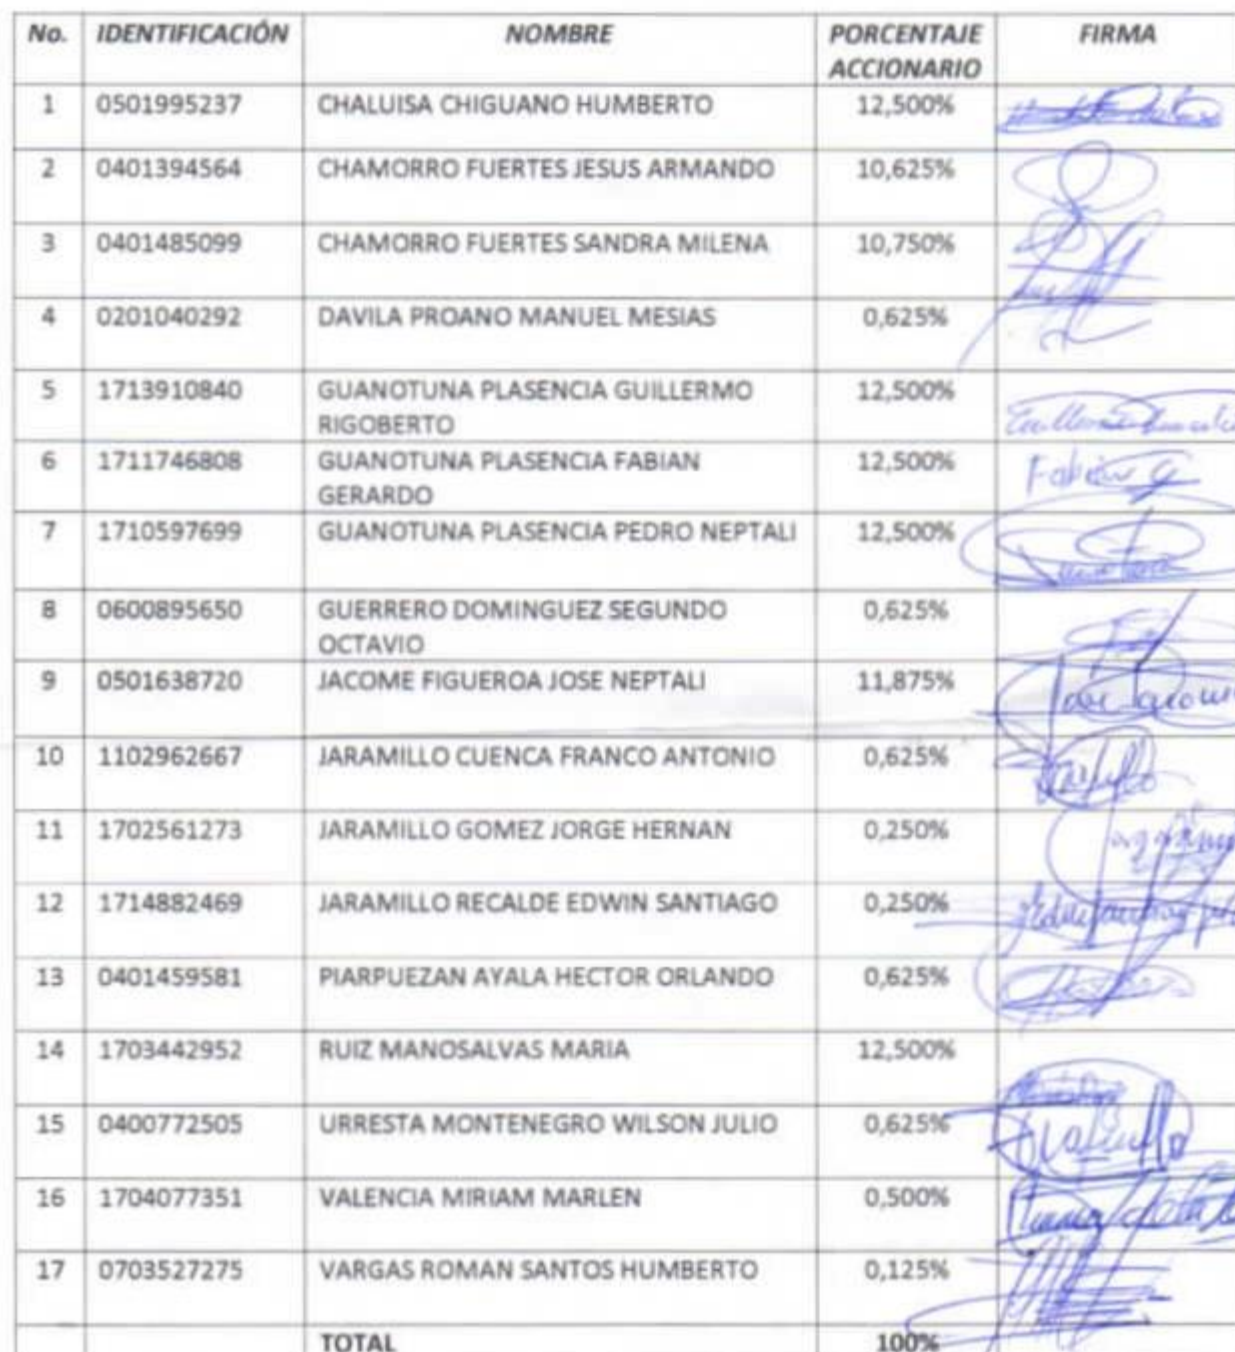 No. IDENTIFICACIÓN NOMBRE PORCENTAJE ACCIONARIO FIRMA
1 0501995237 CHALUISA CHIGUANO HUMBERTO 12,500%
2 0401394564 CHAMORRO FUERTES JESUS ARMANDO 10,625%
3 0401485099 CHAMORRO FUERTES SANDRA MILENA 10,750%
4 0201040292 DAVILA PROANO MANUEL MESIAS 0,625%
5 1713910840 GUANOTUNA PLASENCIA GUILLERMO 12,500%
RIGOBERTO
6 1711746808 GUANOTUNA PLASENCIA FABIAN 12,500% Fabian G
GERARDO
7 1710597699 GUANOTUNA PLASENCIA PEDRO NEPTALI 12,500%
8 0600895650 GUERRERO DOMINGUEZ SEGUNDO 0,625%
OCTAVIO
9 0501638720 JACOME FIGUEROA JOSE NEPTALI 11,875%
10 1102962667 JARAMILLO CUENCA FRANCO ANTONIO 0,625%
11 1702561273 JARAMILLO GOMEZ JORGE HERNAN 0,250%
12 1714882469 JARAMILLO RECALDE EDWIN SANTIAGO 0,250%
13 0401459581 PIARPUEZAN AYALA HECTOR ORLANDO 0,625%
14 1703442952 RUIZ MANOSALVAS MARIA 12,500%
15 0400772505 URRESTA MONTENEGRO WILSON JULIO 0,625%
16 1704077351 VALENCIA MIRIAM MARLEN 0,500%
17 0703527275 VARGAS ROMAN SANTOS HUMBERTO 0,125%
TOTAL 100%